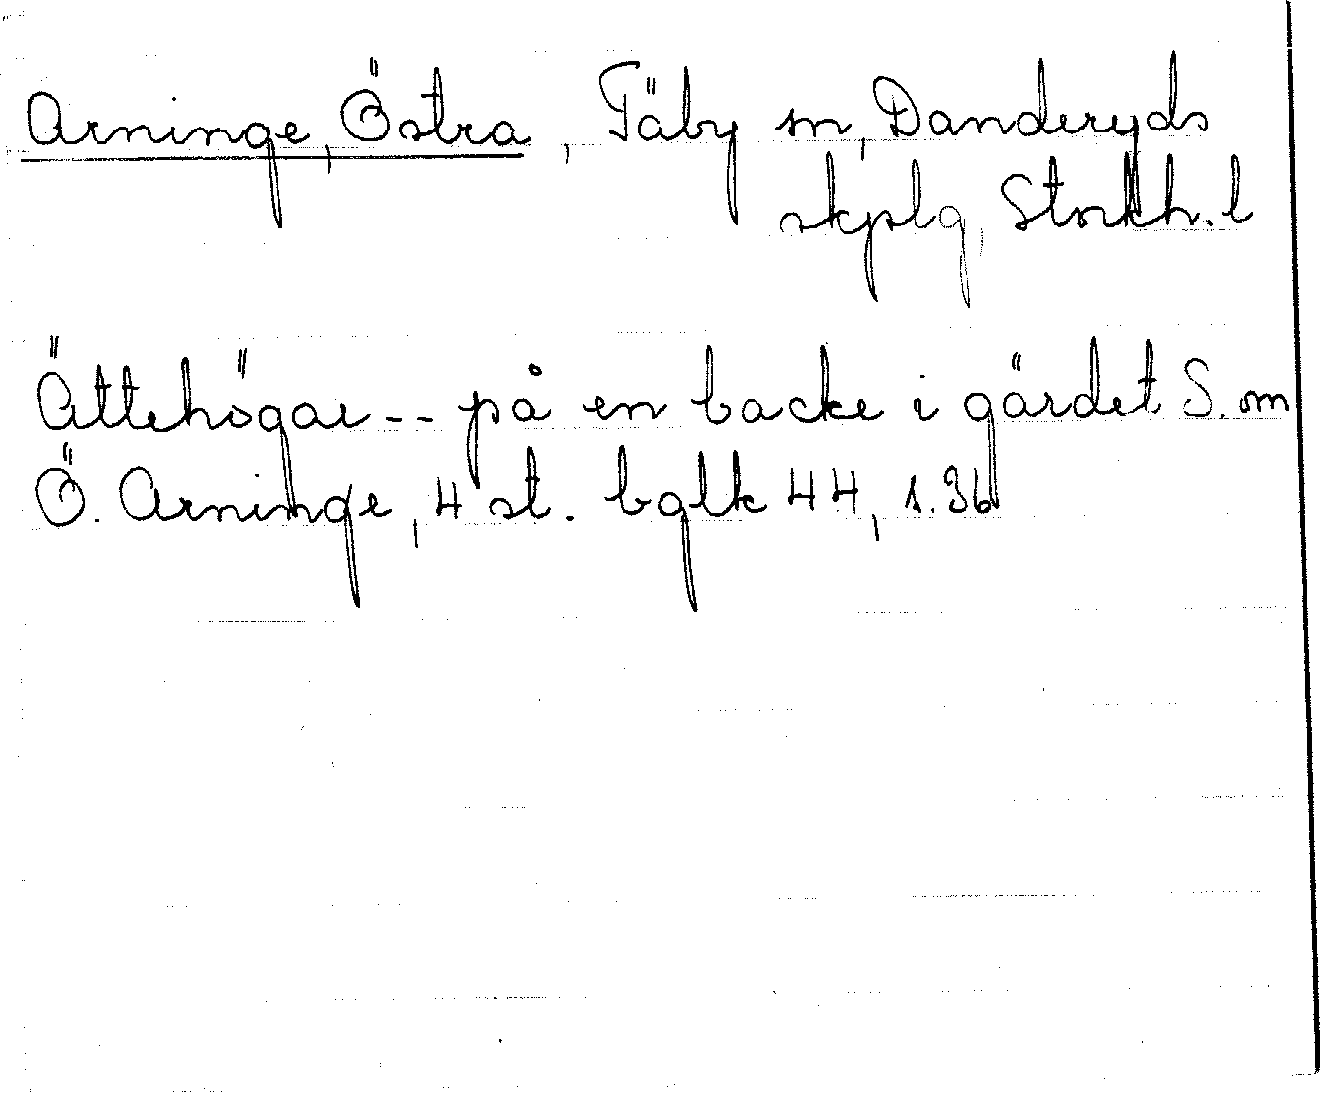 Arninge, Östra, Täby sn, Danderyds
skplg, Stockh. l
Ättehögar -- på en backe i gärdet S. om
Ö. Arninge, 4 st. bglk 44, s. 36